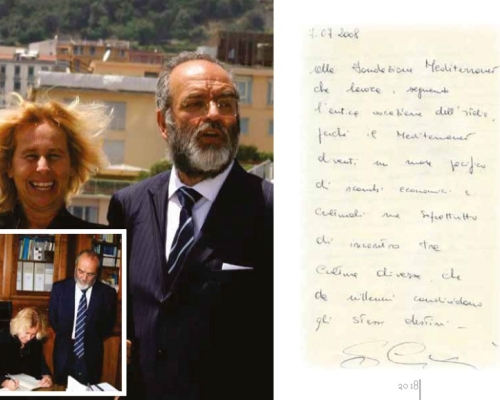 7.07.2008
alla Fondazione Mediterraneo
che lavora, seguendo
l'antica vocazione dell'
perché il Mediterraneo
diventi un mare pacifico
di scambi economici e
culturali ma soprattutto
di incontro tra
culture diverse che
da millenni condividono
gli stessi destini –
2018